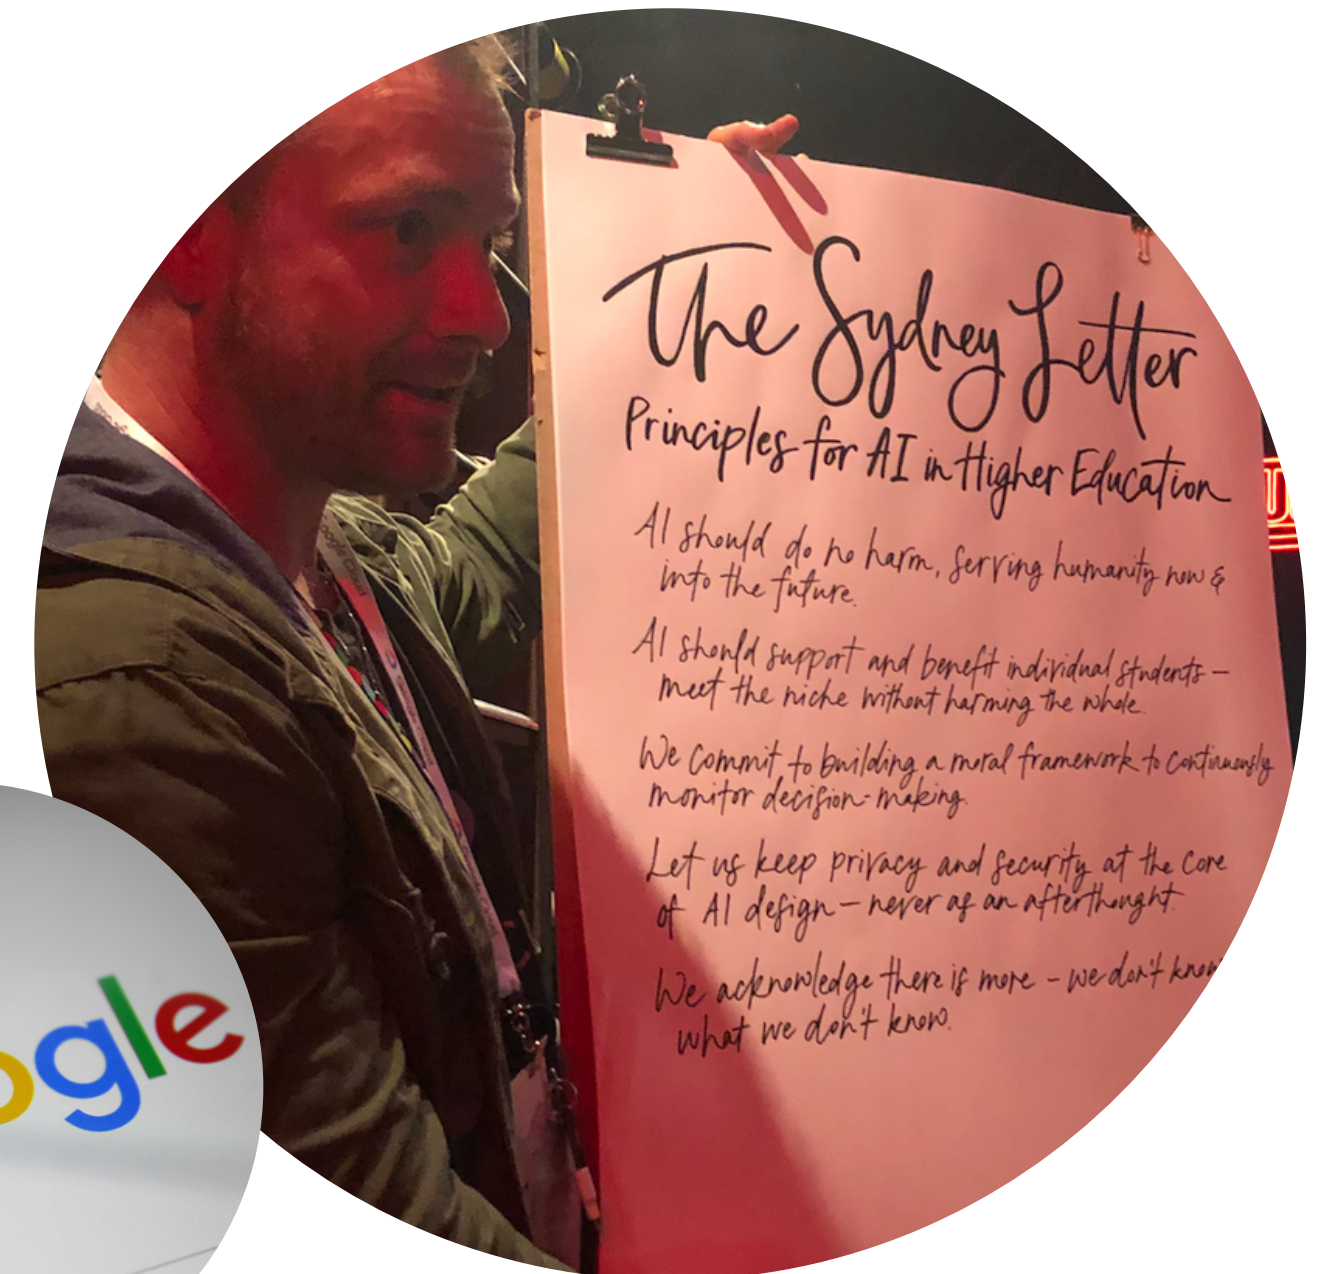 The Sydney Letter
Principles for AI in Higher Education
AI should do no harm, serving humanity now &
into the future.
AI should support and benefit individual students –
meet the niche without harming the whole.
We commit to building a moral framework to continuously
monitor decision-making.
Let us keep privacy and security at the core
of AI design – never as an afterthought.
We acknowledge there is more – we don't know
what we don't know.
Google Cloud
ogle